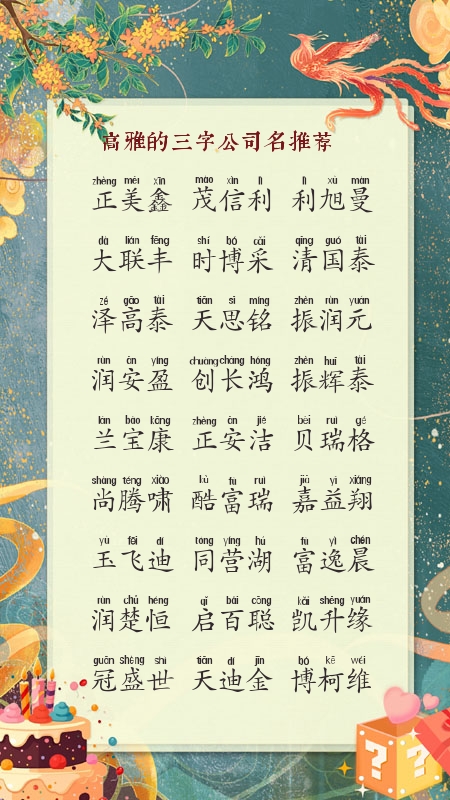 高雅的三字公司名推荐
zhèng měi xīn mào xìn lì lì xù màn
正美鑫 茂信利 利旭曼
dà lián fēng shí bó cǎi qīng guó tài
大联丰 时博采 清国泰
zé gāo tài tiān sī míng zhèn rùn yuán
泽高泰 天思铭 振润元
rùn ān yíng chuàng cháng hóng zhèn huī tài
润安盈 创长鸿 振辉泰
lán bǎo kāng zhèng ān jié bèi ruì gé
兰宝康 正安洁 贝瑞格
shàng téng xiào kù fù ruì jiā yì xiáng
尚腾啸 酷富瑞 嘉益翔
yù fēi dí tóng yíng hú fù yì chén
玉飞迪 同营湖 富逸晨
rùn chǔ héng qǐ bǎi cōng kǎi shēng yuán
润楚恒 启百聪 凯升缘
guān shèng shì tiān dí jīn bó kē wéi
冠盛世 天迪金 博柯维
? ?